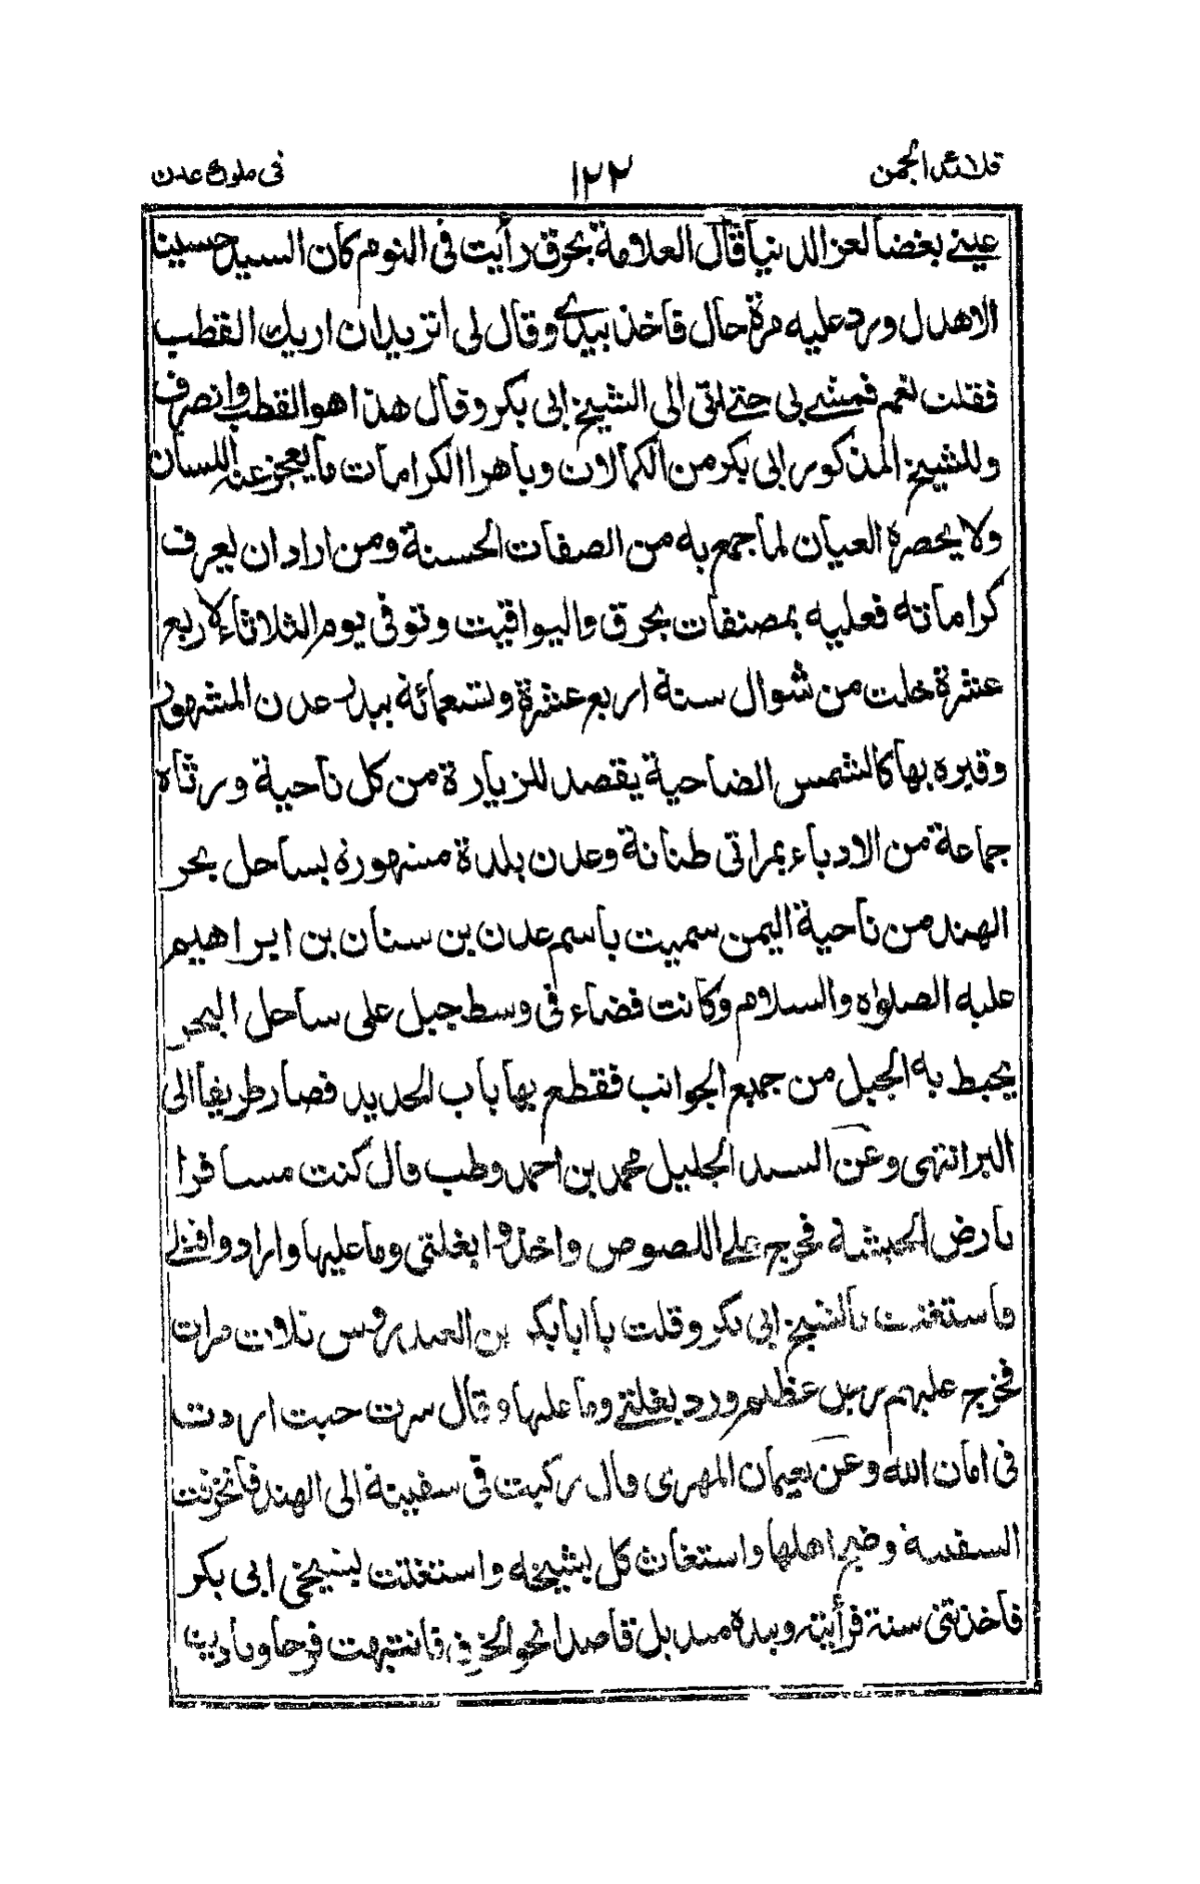 قلائد الجمن ١٢٢ في ملوك عدن
عيني بغضا لعز الدنيا فقال العلامة بحرق رأيت في النوم كان السيد حسينا
الاهدل ورد عليه مرة حال فاخذ بيدي وقال لي اتريد ان اريك القطب
فقلت نعم فمشي بي حتي اتى الى الشيخ ابي بكر وقال هذا هو القطب وانصرف
وللشيخ المذكور ابي بكر من الكمالات وباهر الكرامات ما يعجز عنه اللسان
ولا يحصره العيان لما جمع به من الصفات الحسنة ومن اراد ان يعرف
كراماته فعليه بمصنفات بحرق واليواقيت وتوفي يوم الثلاثاء لاربع
عشرة خلت من شوال سنة اربع عشرة وتسعمائة ببندر عدن المشهور
وقبره بها كالشمس الضاحية يقصد للزيارة من كل ناحية ورثاه
جماعة من الادباء بمراثي طنانة وعدن بلدة مشهوره بساحل بحر
الهند من ناحية اليمن سميت باسم عدن بن سنان بن ابراهيم
عليه الصلواة والسلام وكانت فضاء في وسط جبل على ساحل البحر
يحيط به الجبل من جميع الجوانب فقطع بها باب الحديد فصار طريقا الى
البر انتهى وعن السيد الجليل محمد بن احمد وطب قال كنت مسافرا
بارض الحبشة فخرج علي اللصوص واخذوا بغلتي وما عليها وارادوا قتلي
فاستغثت بالشيخ ابي بكر وقلت يا ابا بكر بن العيدروس ثلاث مرات
فخرج عليهم رجل عظيم ورد بغلتي وما عليها وقال سرت حيث اردت
في امان الله وعن نعمان المهري قال ركبت في سفينة الى الهند فانخرقت
السفينة وضج اهلها واستغاث كل بشيخه واستغثت بشيخي ابي بكر
فاخذتني سنة فرأيته وبيده منديل قاصدا نحو الخرق فانتبهت فرحا وناديت